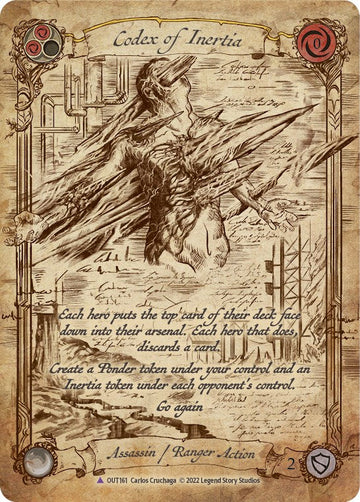 Codex of Inertia
Each hero puts the top card of their deck face
down into their arsenal. Each hero that does,
discards a card.
Create a Ponder token under your control and an
Inertia token under each opponent's control.
Go again
Assassin / Ranger Action
2
OUT161 Carlos Cruchaga © 2022 Legend Story Studios